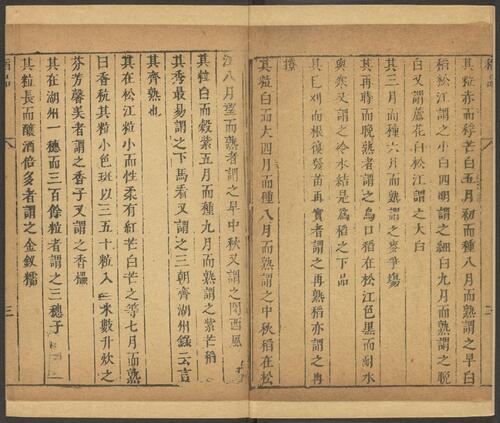 其粒赤而稃芒白五月初而種八月而熟謂之早白
稻松江謂之小白四明謂之細白九月而熟謂之晚
白又謂之蘆花白松江謂之大白
其三月而種六月而熟謂之麥爭塲
其再蒔而晚熟者謂之烏口稻在松江色黑而耐水
與寒又謂之冷水結是爲稻之下品
其已刈而根復發苗再實者謂之再熟稻亦謂之再
撩
其粒白而大四月而種八月而熟謂之中秋稻在松
江八月望而熟者謂之早中秋又謂之閃西風
其粒白而穀紫五月而種九月而熟謂之紫芒稻
其秀最易謂之下馬看又謂之三朝齊湖州錄云言
其齊熟也
其在松江粒小而性柔有紅芒白芒之等七月而熟
曰香秔其粒小色斑以三五十粒入他米數升炊之
芬芳馨美者謂之香子又謂之香櫑
其在湖州一穗而三百餘粒者謂之三穗子
其粒長而釀酒倍多者謂之金釵糯
稻品
三
二